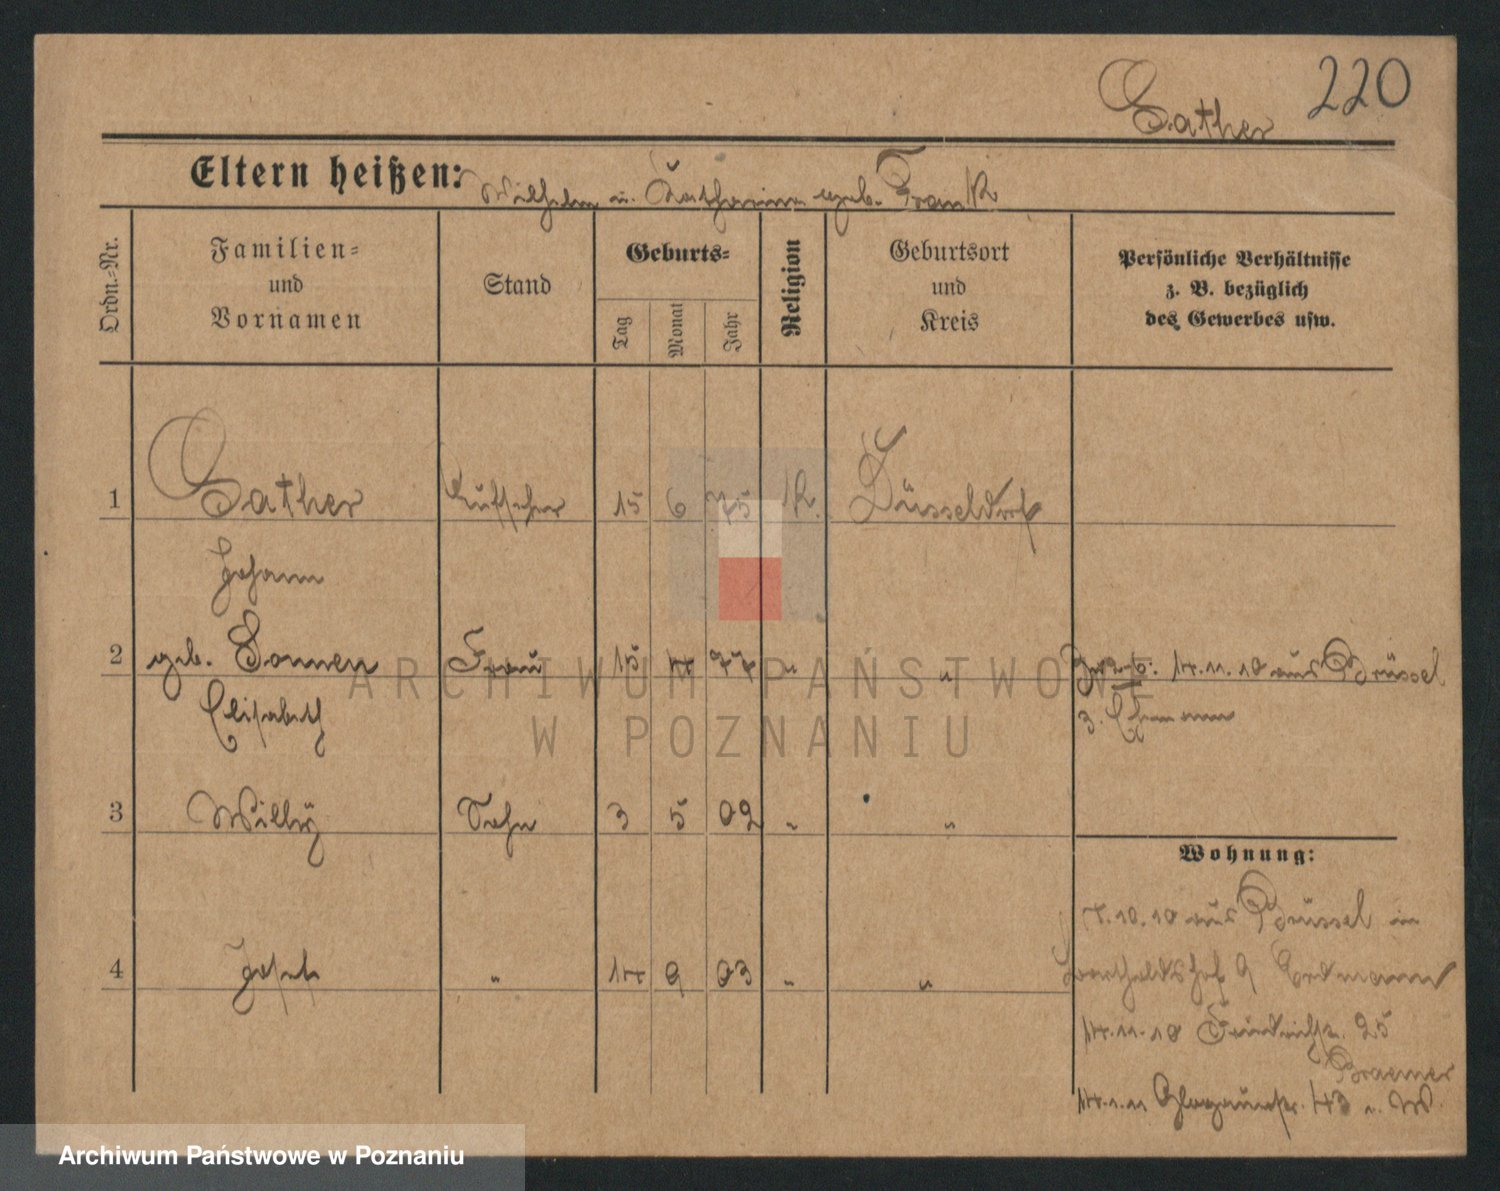 220
Sather
Eltern heißen: Wilhelm u. Katharina geb. Frank
Ordn.-Nr.
Familien-
und
Vornamen
Stand
Geburts-
Tag
Monat
Jahr
Religion
Geburtsort
und
Kreis
Persönliche Verhältnisse
z. B. bezüglich
des Gewerbes usw.
1 Sather Kutscher 15 6 75 K. Düsseldorf
Johann
2 geb. Sonnen Frau 15 4 77 " " 14.11.10 aus Brüssel
Elisabeth 3. Ehemann
3 Willy Sohn 3 5 02 " "
Wohnung:
7.10.10 aus Brüssel in
4 Josef " 14 9 03 " "
9 Erdmann
14.11.10 Friedrichstr. 25
Braemer
14.1.11 Glogauerstr. 43 . W.
ARCHIWUM PAŃSTWOWE
W POZNANIU
Archiwum Państwowe w Poznaniu